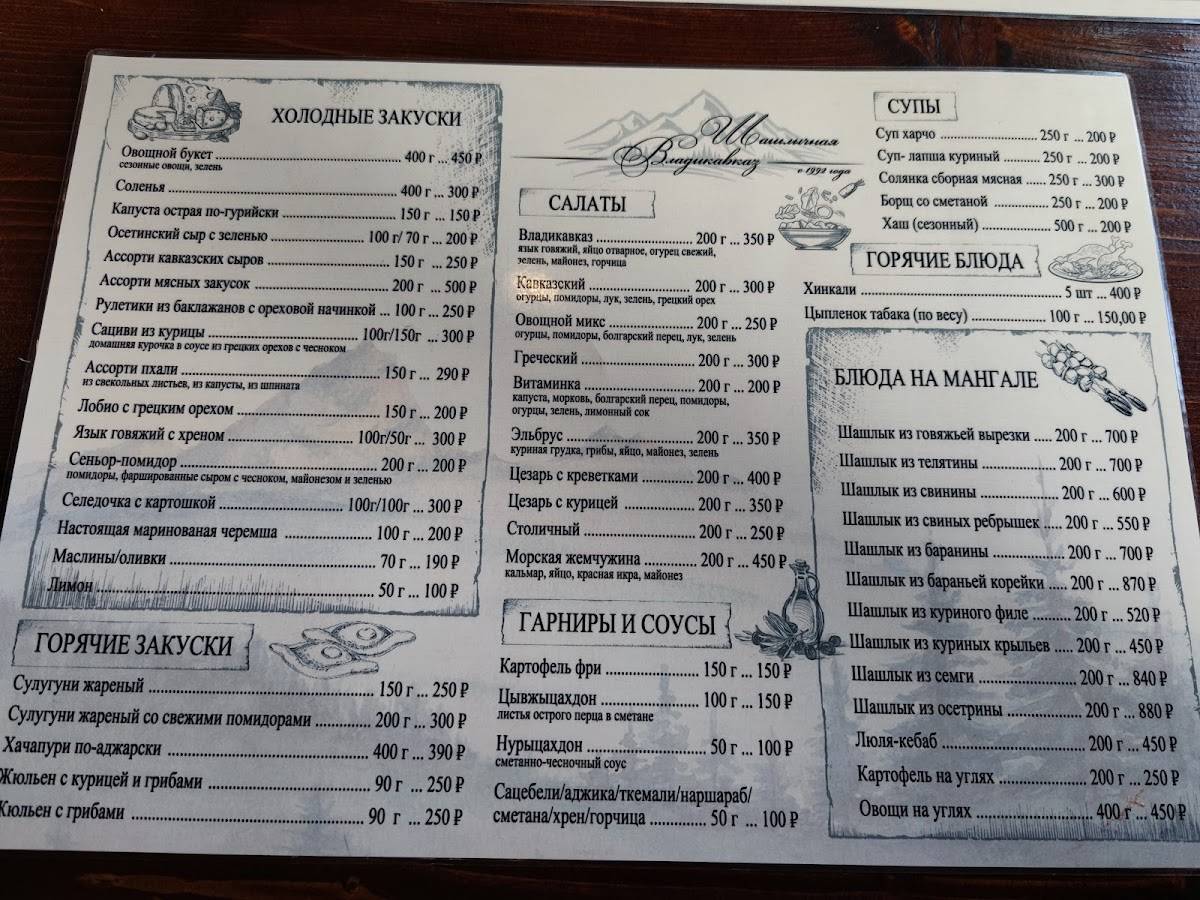 ХОЛОДНЫЕ ЗАКУСКИ
Овощной букет ..... 400 г ... 450 ₽
сезонные овощи, зелень
Соленья ..... 400 г ... 300 ₽
Капуста острая по-гурийски ..... 150 г ... 150 ₽
Осетинский сыр с зеленью ..... 100 г/ 70 г ... 200 ₽
Ассорти кавказских сыров ..... 150 г ... 250 ₽
Ассорти мясных закусок ..... 200 г ... 500 ₽
Рулетики из баклажанов с ореховой начинкой ... 100 г ... 250 ₽
Сациви из курицы ..... 100г/150г ... 300 ₽
домашняя курочка в соусе из грецких орехов с чесноком
Ассорти пхали ..... 150 г ... 290 ₽
из свекольных листьев, из капусты, из шпината
Лобио с грецким орехом ..... 150 г ... 200 ₽
Язык говяжий с хреном ..... 100г/50г ... 300 ₽
Сеньор-помидор ..... 200 г ... 200 ₽
помидоры, фаршированные сыром с чесноком, майонезом и зеленью
Селедочка с картошкой ..... 100г/100г ... 300 ₽
Настоящая маринованая черемша ..... 100 г ... 200 ₽
Маслины/оливки ..... 70 г ... 190 ₽
Лимон ..... 50 г ... 100 ₽
ГОРЯЧИЕ ЗАКУСКИ
Сулугуни жареный ..... 150 г ... 250 ₽
Сулугуни жареный со свежими помидорами ..... 200 г ... 300 ₽
Хачапури по-аджарски ..... 400 г ... 390 ₽
Жюльен с курицей и грибами ..... 90 г ... 250 ₽
Жюльен с грибами ..... 90 г ... 250 ₽
Шашлычная
Владикавказ
с 1992 года
САЛАТЫ
Владикавказ ..... 200 г ... 350 ₽
язык говяжий, яйцо отварное, огурец свежий,
зелень, майонез, горчица
Кавказский ..... 200 г ... 300 ₽
огурцы, помидоры, лук, зелень, грецкий орех
Овощной микс ..... 200 г ... 250 ₽
огурцы, помидоры, болгарский перец, лук, зелень
Греческий ..... 200 г ... 300 ₽
Витаминка ..... 200 г ... 200 ₽
капуста, морковь, болгарский перец, помидоры,
огурцы, зелень, лимонный сок
Эльбрус ..... 200 г ... 350 ₽
куриная грудка, грибы, яйцо, майонез, зелень
Цезарь с креветками ..... 200 г ... 400 ₽
Цезарь с курицей ..... 200 г ... 350 ₽
Столичный ..... 200 г ... 250 ₽
Морская жемчужина ..... 200 г ... 450 ₽
кальмар, яйцо, красная икра, майонез
ГАРНИРЫ И СОУСЫ
Картофель фри ..... 150 г ... 150 ₽
Цывжыцахдон ..... 100 г ... 150 ₽
листья острого перца в сметане
Нурыцахдон ..... 50 г ... 100 ₽
сметанно-чесночный соус
Сацебели/аджика/ткемали/наршараб/
сметана/хрен/горчица ..... 50 г ... 100 ₽
СУПЫ
Суп харчо ..... 250 г ... 200 ₽
Суп- лапша куриный ..... 250 г ... 200 ₽
Солянка сборная мясная ..... 250 г ... 300 ₽
Борщ со сметаной ..... 250 г ... 200 ₽
Хаш (сезонный) ..... 500 г ... 200 ₽
ГОРЯЧИЕ БЛЮДА
Хинкали ..... 5 шт ... 400 ₽
Цыпленок табака (по весу) ..... 100 г ... 150,00 ₽
БЛЮДА НА МАНГАЛЕ
Шашлык из говяжьей вырезки ..... 200 г ... 700 ₽
Шашлык из телятины ..... 200 г ... 700 ₽
Шашлык из свинины ..... 200 г ... 600 ₽
Шашлык из свиных ребрышек ..... 200 г ... 550 ₽
Шашлык из баранины ..... 200 г ... 700 ₽
Шашлык из бараньей корейки ..... 200 г ... 870 ₽
Шашлык из куриного филе ..... 200 г ... 520 ₽
Шашлык из куриных крыльев ..... 200 г ... 450 ₽
Шашлык из семги ..... 200 г ... 840 ₽
Шашлык из осетрины ..... 200 г ... 880 ₽
Люля-кебаб ..... 200 г ... 450 ₽
Картофель на углях ..... 200 г ... 250 ₽
Овощи на углях ..... 400 г ... 450 ₽